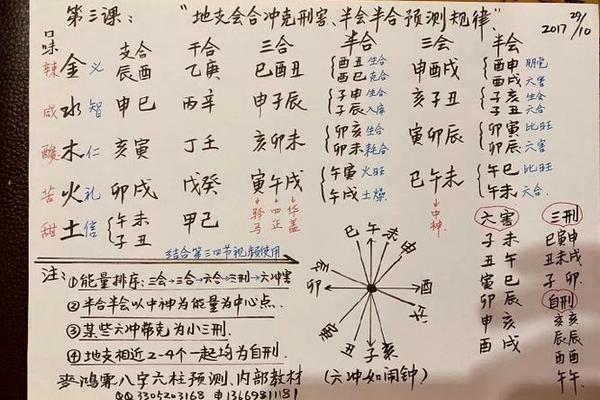 第三课：“地支会合冲克刑害、半会半合预测规律” 2017 29/10
口味 支合 干合 三合 半合 三会 半会
辣 金 义 辰酉 乙庚 巳酉丑 酉丑 生合 酉巳 克合 申酉戌 酉申 朋党 酉戌 六害
咸 水 智 申巳 丙辛 申子辰 子申 生合 子辰 入库 亥子丑 子亥 生会 子丑 六合
酸 木 仁 亥寅 丁壬 亥卯未 卯亥 生合 卯未 耗合 寅卯辰 卯寅 比旺 卯辰 六害
苦 火 礼 卯戌 戊癸 寅午戌 午寅 火旺 午戌 土燥 巳午未 午巳 比旺 午未 六合
甜 土 信 午未 子丑 甲己 驿马 四正 华盖 中神
结合第三四节视频使用
注：①能量排序：三会→三合→六合→三刑→六冲害
②半合半会以中神为能量为中心点.
③某些六冲带克为小三刑.
④地支相近2-4个一起均为自刑.
麥鴻霖八字六柱预测、内部教材
QQ 3305203168 申13669811181
巳 午 未 申
卯 酉
丑 子 亥
(六冲如闹钟)
六害
子 未
丑 午
寅 巳
卯 辰
申 亥
酉 戌
三刑
巳寅申
丑未戌
子 卯
自刑
亥亥
辰辰
酉酉
午午